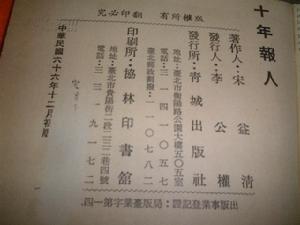 十年報人
版權所有 翻印必究
著作人：宋益清
發行人：李公權
發行所：青城出版社
地址：臺北市衡陽路公園大樓五〇五室
電話：三一四一〇五七
臺北郵政劃撥：一一〇七八二
印刷所：協林印書館
地址：臺北市貴陽街二段二三二巷四號
電話：三三一九一七二
中華民國六十六年十二月初版
出版事業登記證：局版臺業字第一四